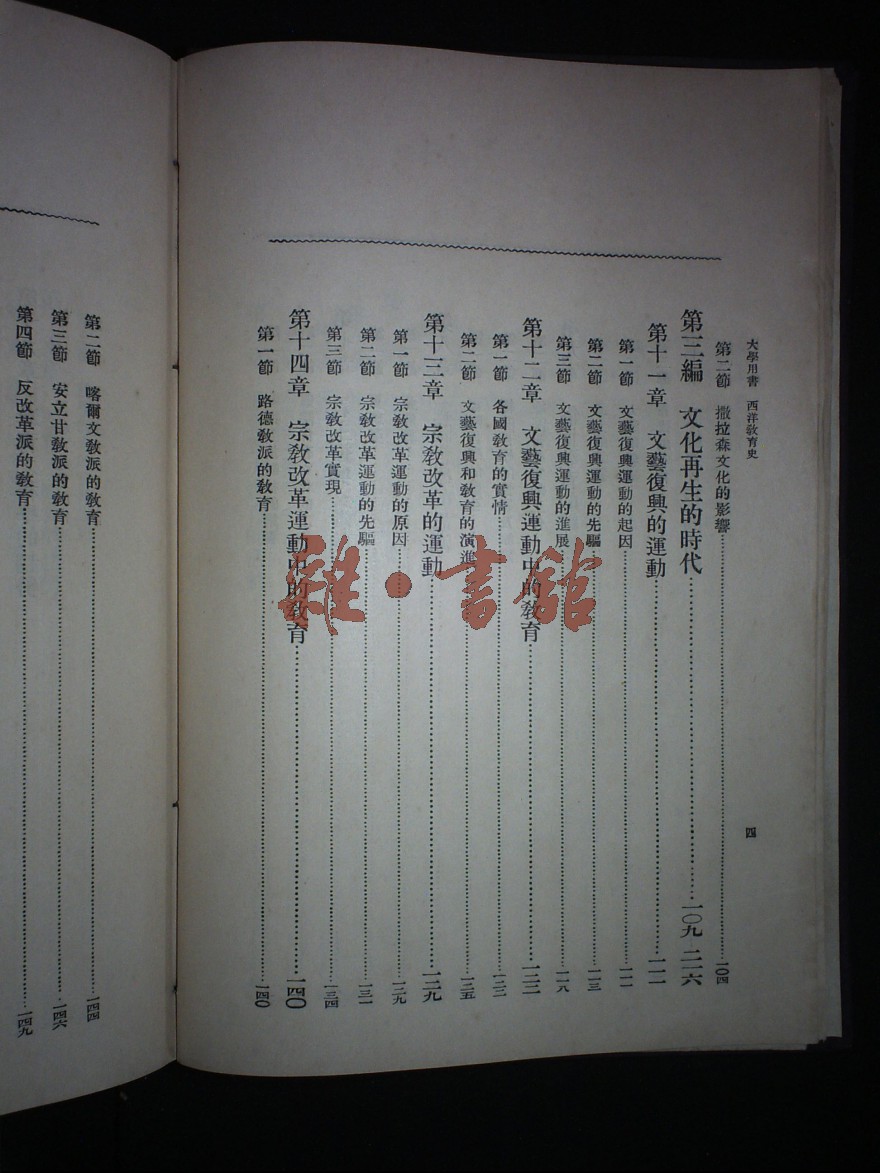 大學用書　西洋敎育史
四
第二節　撒拉森文化的影響…………一〇四
第三編　文化再生的時代…………一〇九—二一六
第十一章　文藝復興的運動…………一一一
第一節　文藝復興運動的起因…………一一一
第二節　文藝復興運動的先驅…………一一三
第三節　文藝復興運動的進展…………一一八
第十二章　文藝復興運動中的敎育…………一二二
第一節　各國敎育的實情…………一二二
第二節　文藝復興和敎育的演進…………一二五
第十三章　宗敎改革的運動…………一二九
第一節　宗敎改革運動的原因…………一二九
第二節　宗敎改革運動的先驅…………一三一
第三節　宗敎改革實現…………一三四
第十四章　宗敎改革運動中的敎育…………一四〇
第一節　路德敎派的敎育…………一四〇
第二節　喀爾文敎派的敎育…………一四四
第三節　安立甘敎派的敎育…………一四六
第四節　反改革派的敎育…………一四九
雜·書館